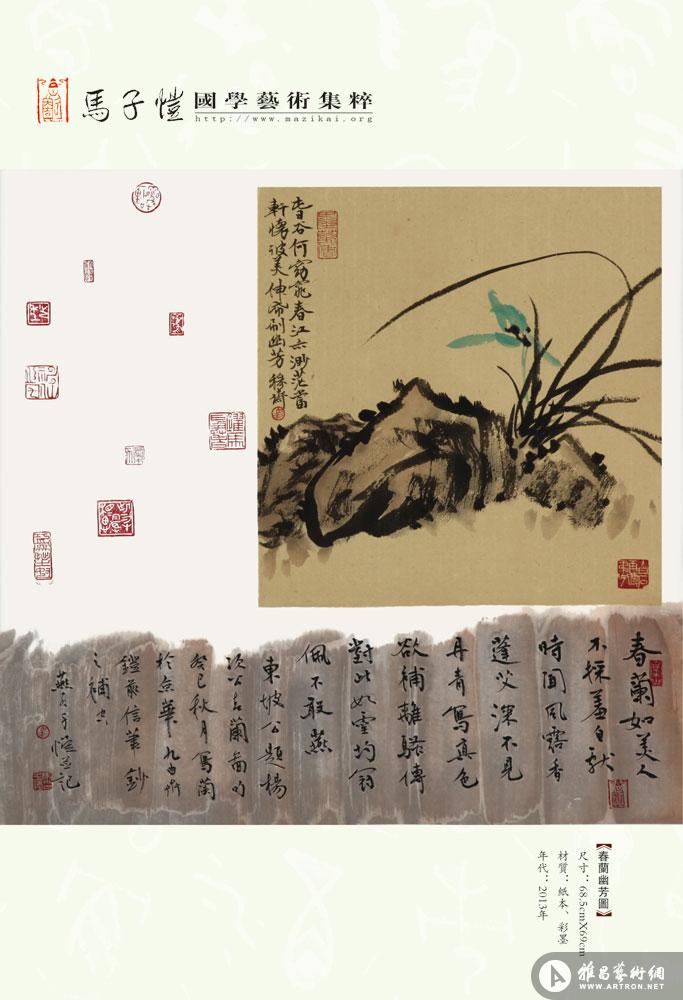 馬子愷 國學藝術集粹
http://www.mazikai.org
谷何窈窕春江亦渺茫當
軒懷彼美伸帋刷幽芳
春蘭如美人
不採羞自獻
時聞風露香
蓬艾深不見
丹青寫真色
欲補離騷傳
對此如靈均冠
佩不敢燕
東坡公題楊
次公春蘭圖句
癸巳秋月寫蘭
於京華九
信筆鈔
之補空
燕子愷並記
《春蘭幽芳圖》
尺寸：68.5cmX69cm
材質：紙本、彩墨
年代：2013年
雅昌藝術網
WWW.ARTRON.NET